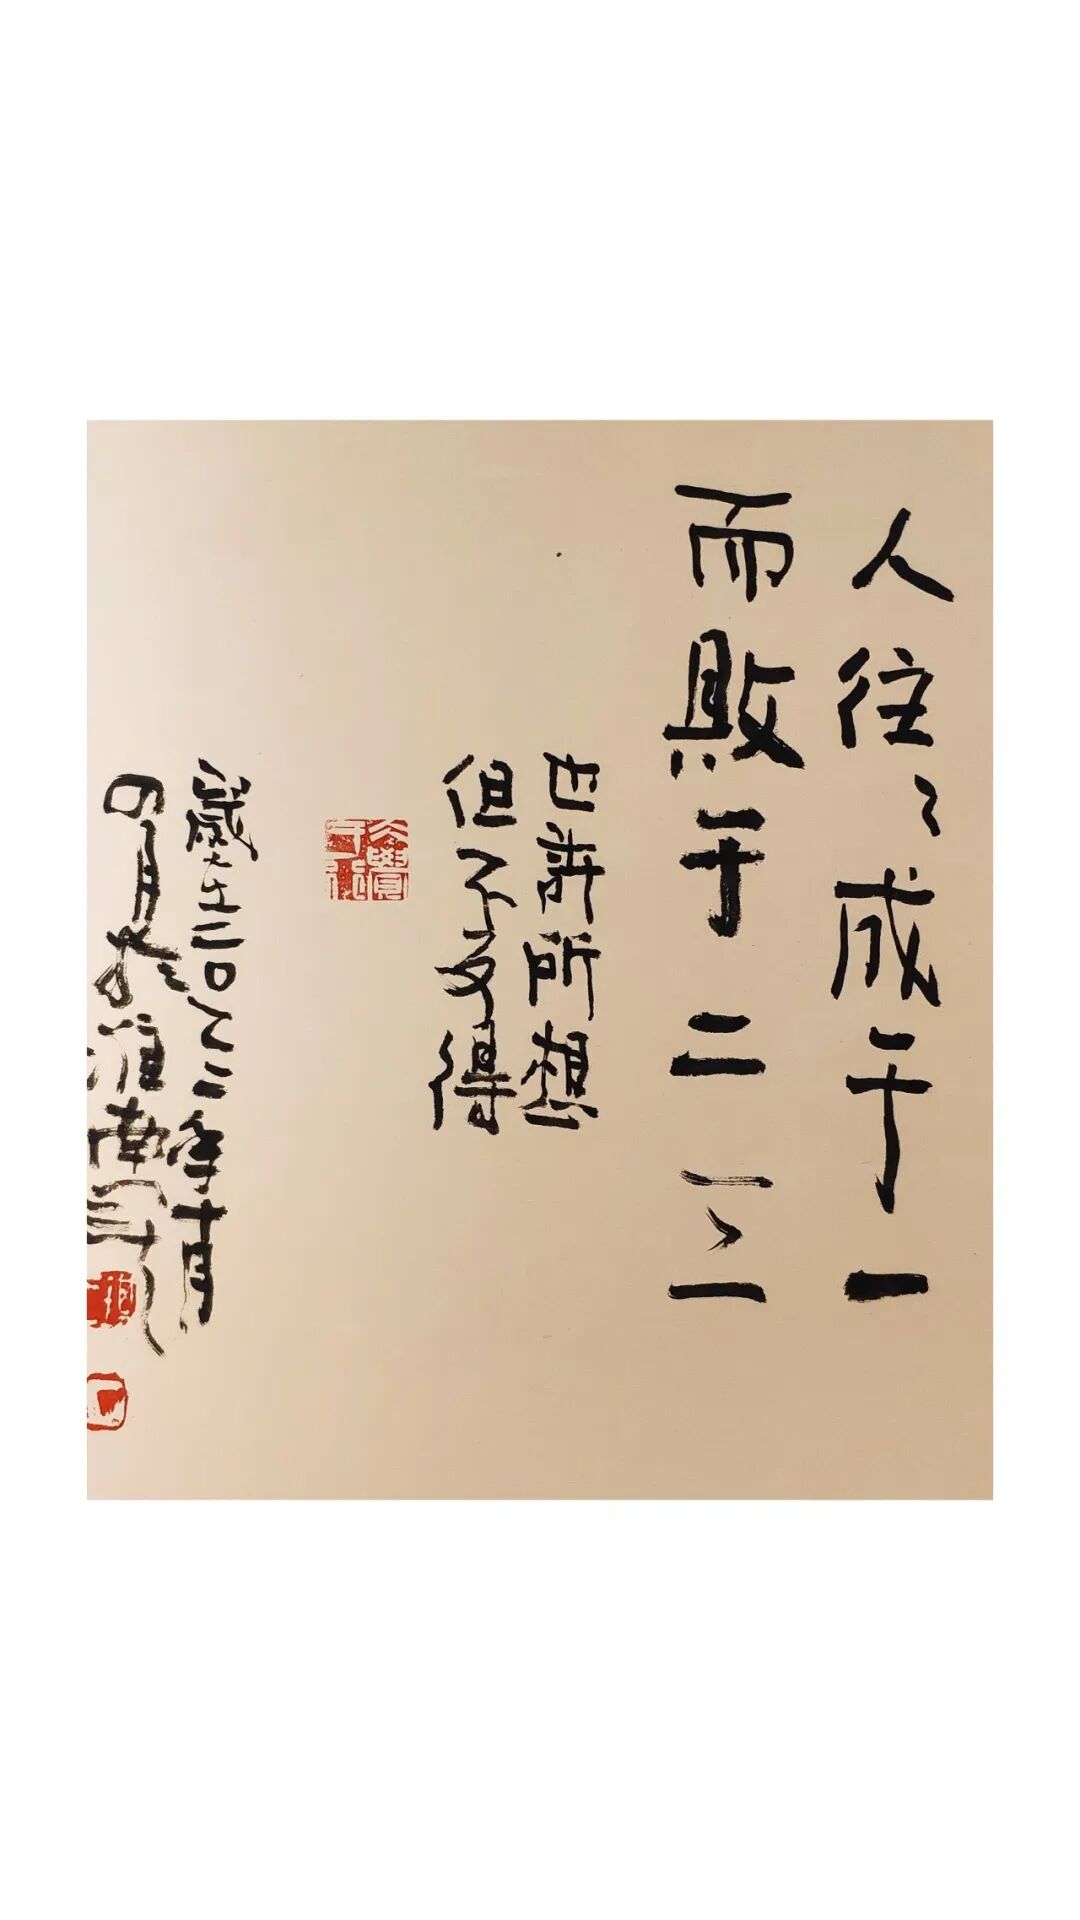 人往々成于一
而敗于二三
也許所想
但不及得
歲在二〇二二年十月
四月於淮南